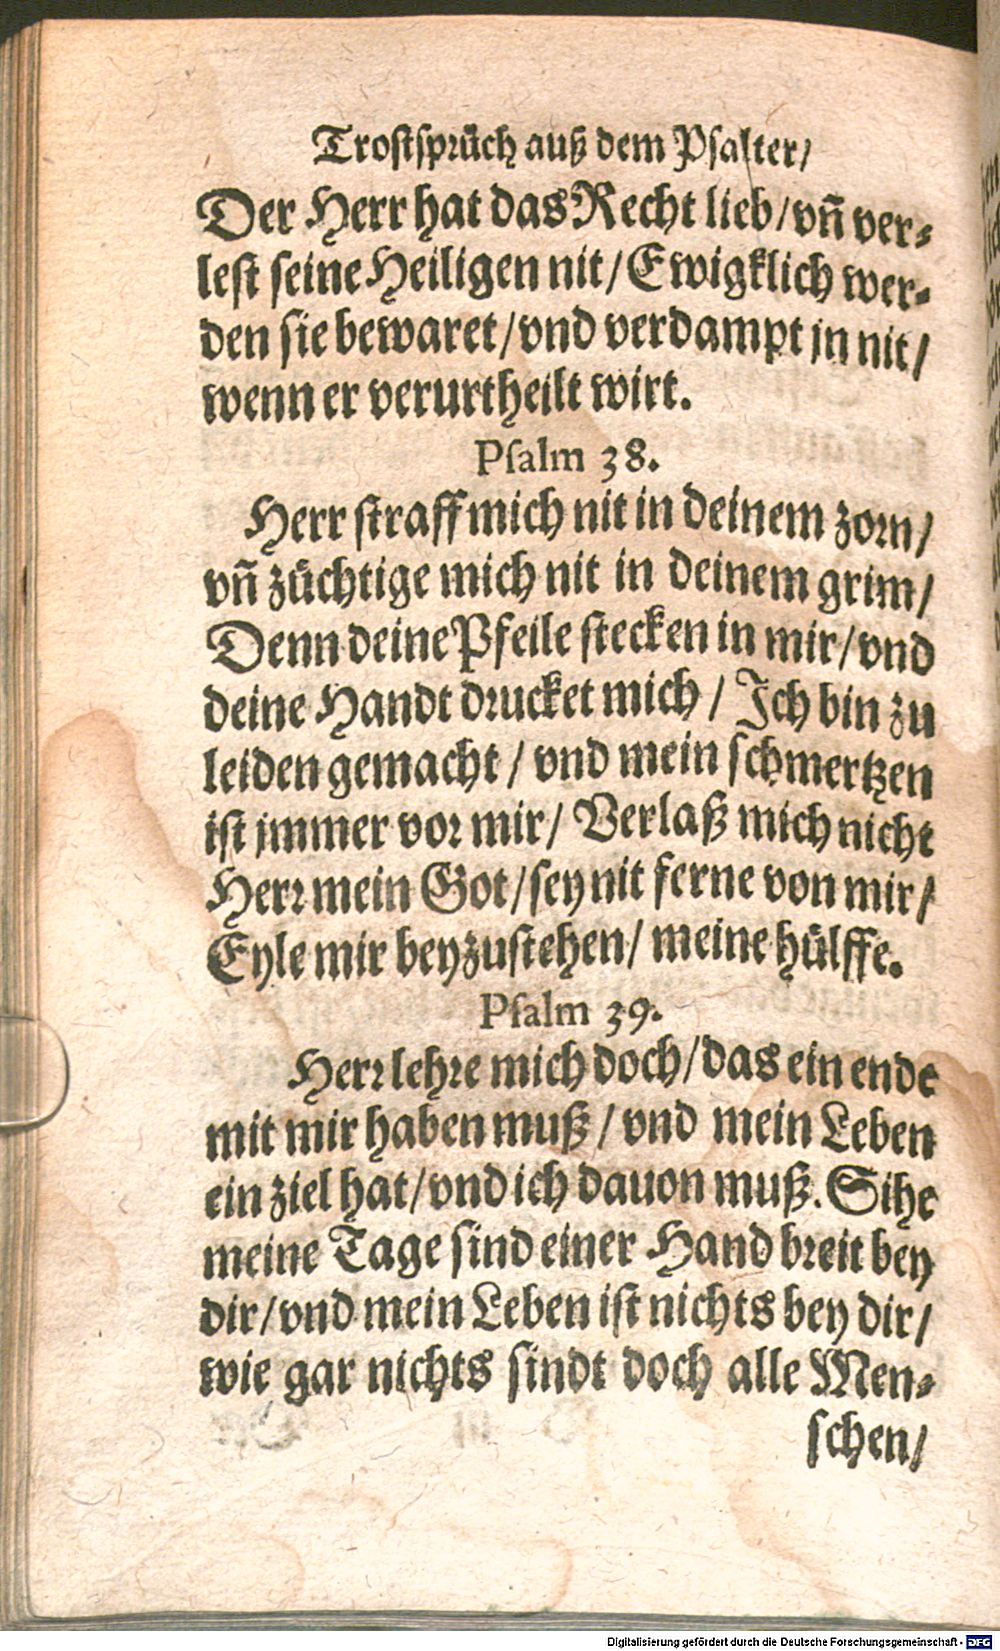 Trostsprüch auß dem Psalter/
Der Herr hat das Recht lieb/vñ ver-
lest seine Heiligen nit/Ewigklich wer-
den sie bewaret/vnd verdampt jn nit/
wenn er verurtheilt wirt.
Psalm 38.
Herr straff mich nit in deinem zorn/
vñ züchtige mich nit in deinem grim/
Denn deine Pfeile stecken in mir/vnd
deine Handt drucket mich / Ich bin zu
leiden gemacht / vnd mein schmertzen
ist jmmer vor mir/ Verlaß mich nicht
Herr mein Got/sey nit ferne von mir/
Eyle mir beyzustehen/ meine hülffe.
Psalm 39.
Herr lehre mich doch/das ein ende
mit mir haben muß / vnd mein Leben
ein ziel hat/vnd ich dauon muß. Sihe
meine Tage sind einer Hand breit bey
dir/vnd mein Leben ist nichts bey dir/
wie gar nichts sindt doch alle Men-
schen/
Digitalisierung gefördert durch die Deutsche Forschungsgemeinschaft - DFG